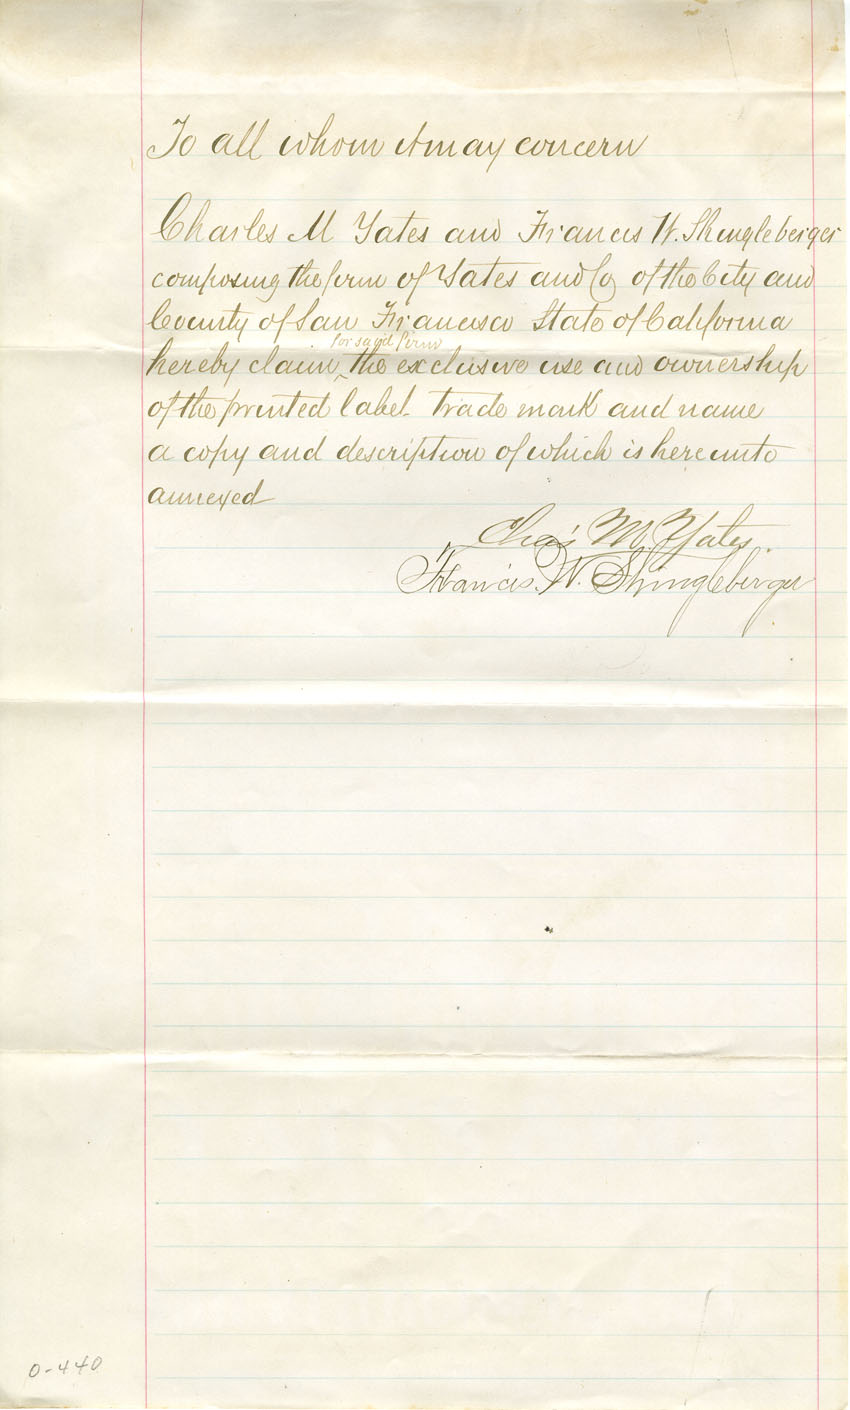 To all whom it may concern
Charles M Yates and Francis W. Shingleberger
composing the firm of Yates and Co of the City and
County of San Francisco State of California
for said firm
hereby claim ‸ the exclusive use and ownership
of the printed label trade mark and name
a copy and description of which is hereunto
annexed
Chas M Yates.
Francis. W. Shingleberger
0-440